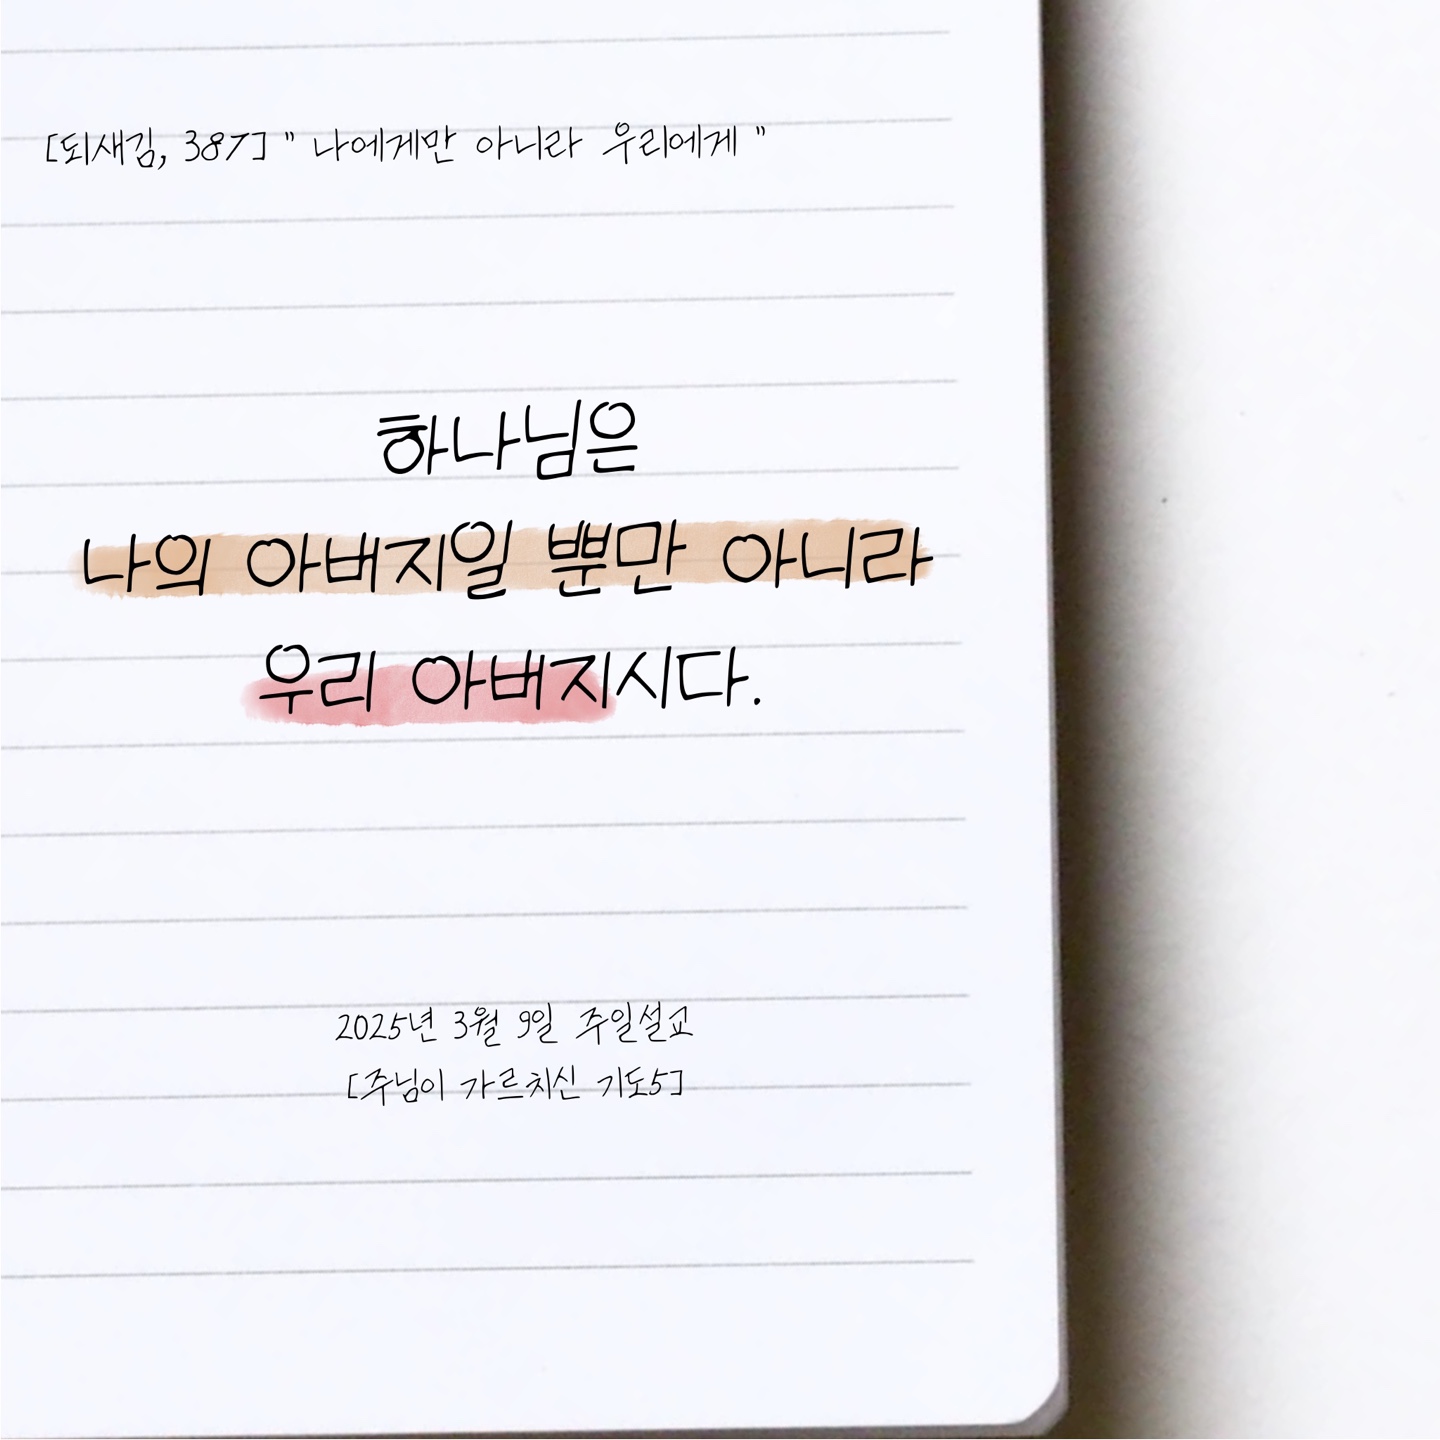 [되새김, 387] " 나에게만 아니라 우리에게 "
하나님은
나의 아버지일 뿐만 아니라
우리 아버지시다.
2025년 3월 9일 주일설교
[주님이 가르치신 기도5]